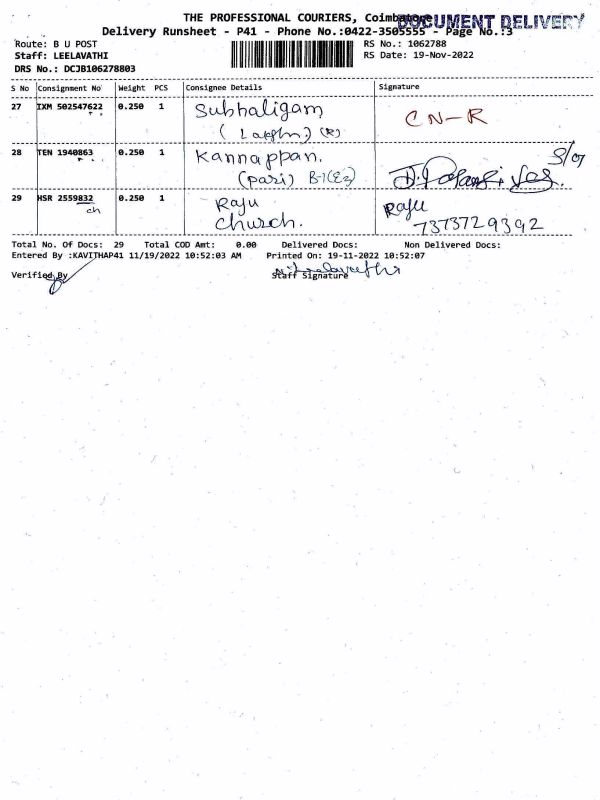 THE PROFESSIONAL COURIERS, Coimbatore
DOCUMENT DELIVERY
Delivery Runsheet - P41 - Phone No.:0422-3505555 - Page No.:3
Route: B U POST
RS No.: 1062788
Staff: LEELAVATHI
RS Date: 19-Nov-2022
DRS No.: DCJB106278803
S No Consignment No Weight PCS Consignee Details Signature
27 IXM 502547622 0.250 1 Subhaligam CN-R
(R)
28 TEN 1940863 0.250 1 Kannappan. S/o
(pasi) B-1
29 HSR 2559832 0.250 1 Raju Raju
ch church. 7373729392
Total No. Of Docs: 29 Total COD Amt: 0.00 Delivered Docs: Non Delivered Docs:
Entered By :KAVITHAP41 11/19/2022 10:52:03 AM Printed On: 19-11-2022 10:52:07
Verified By Staff Signature